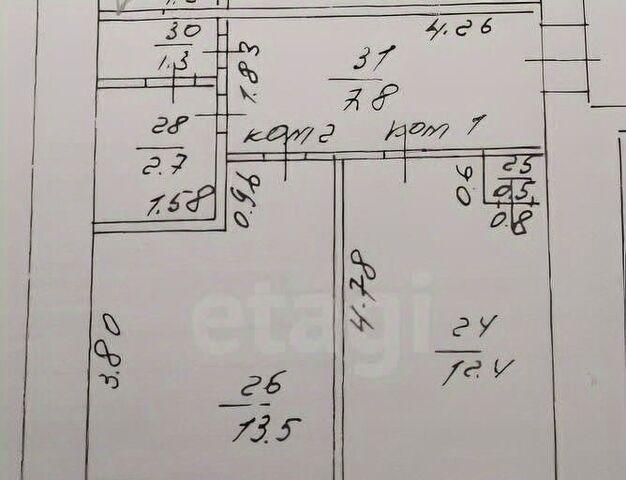 4.26
30
1.3
1.83
31
7.8
28
2.7
ком 2
ком 1
25
0.5
0.8
0.6
1.58
0.96
4.78
3.80
24
12.4
26
13.5
etagi